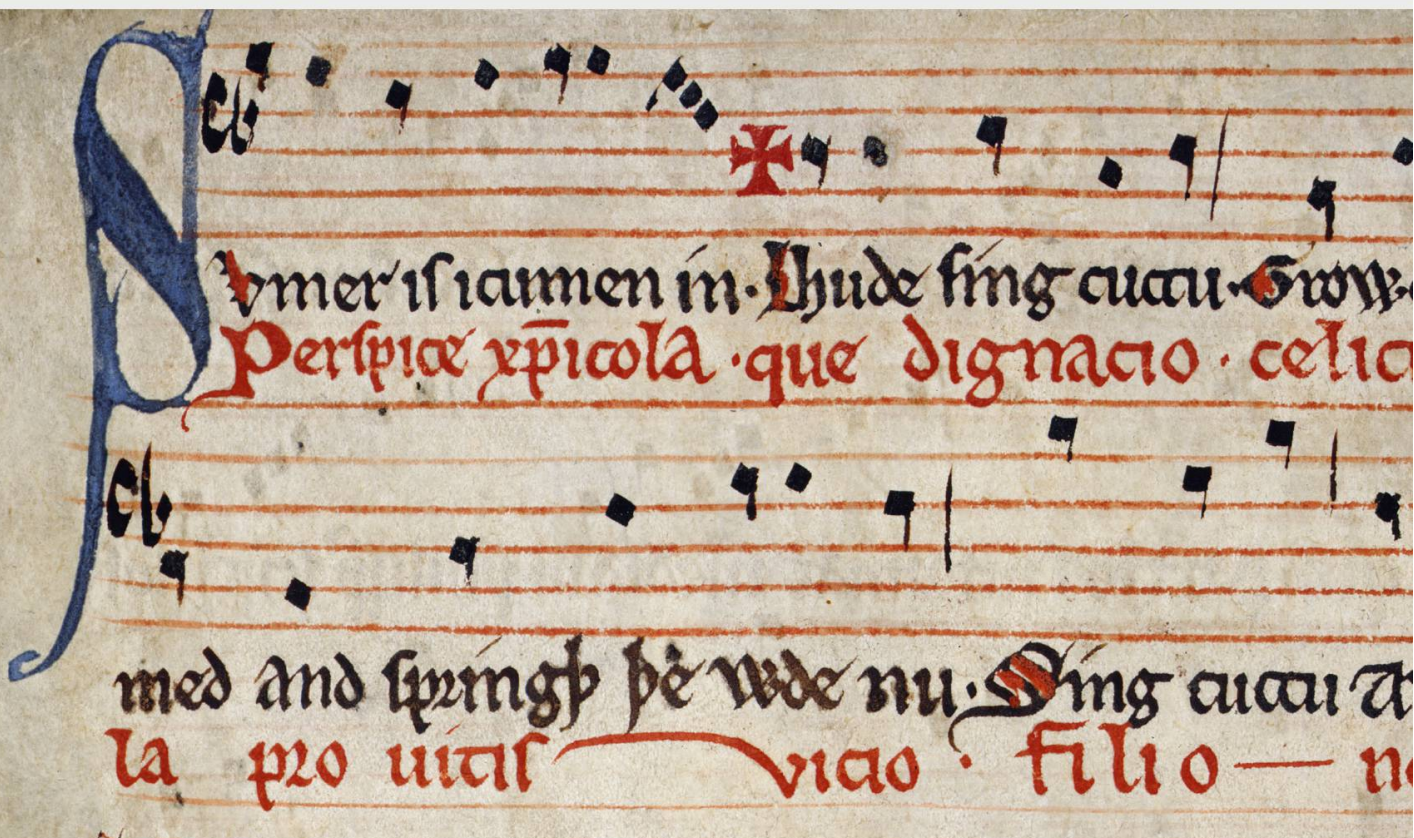 Svmer is icumen in. Lhude sing cuccu. Growe
Perspice xp̄icola . que dignacio . celic
med and springþ þe wde nu. Sing cuccu
la pro uitis vicio . filio —